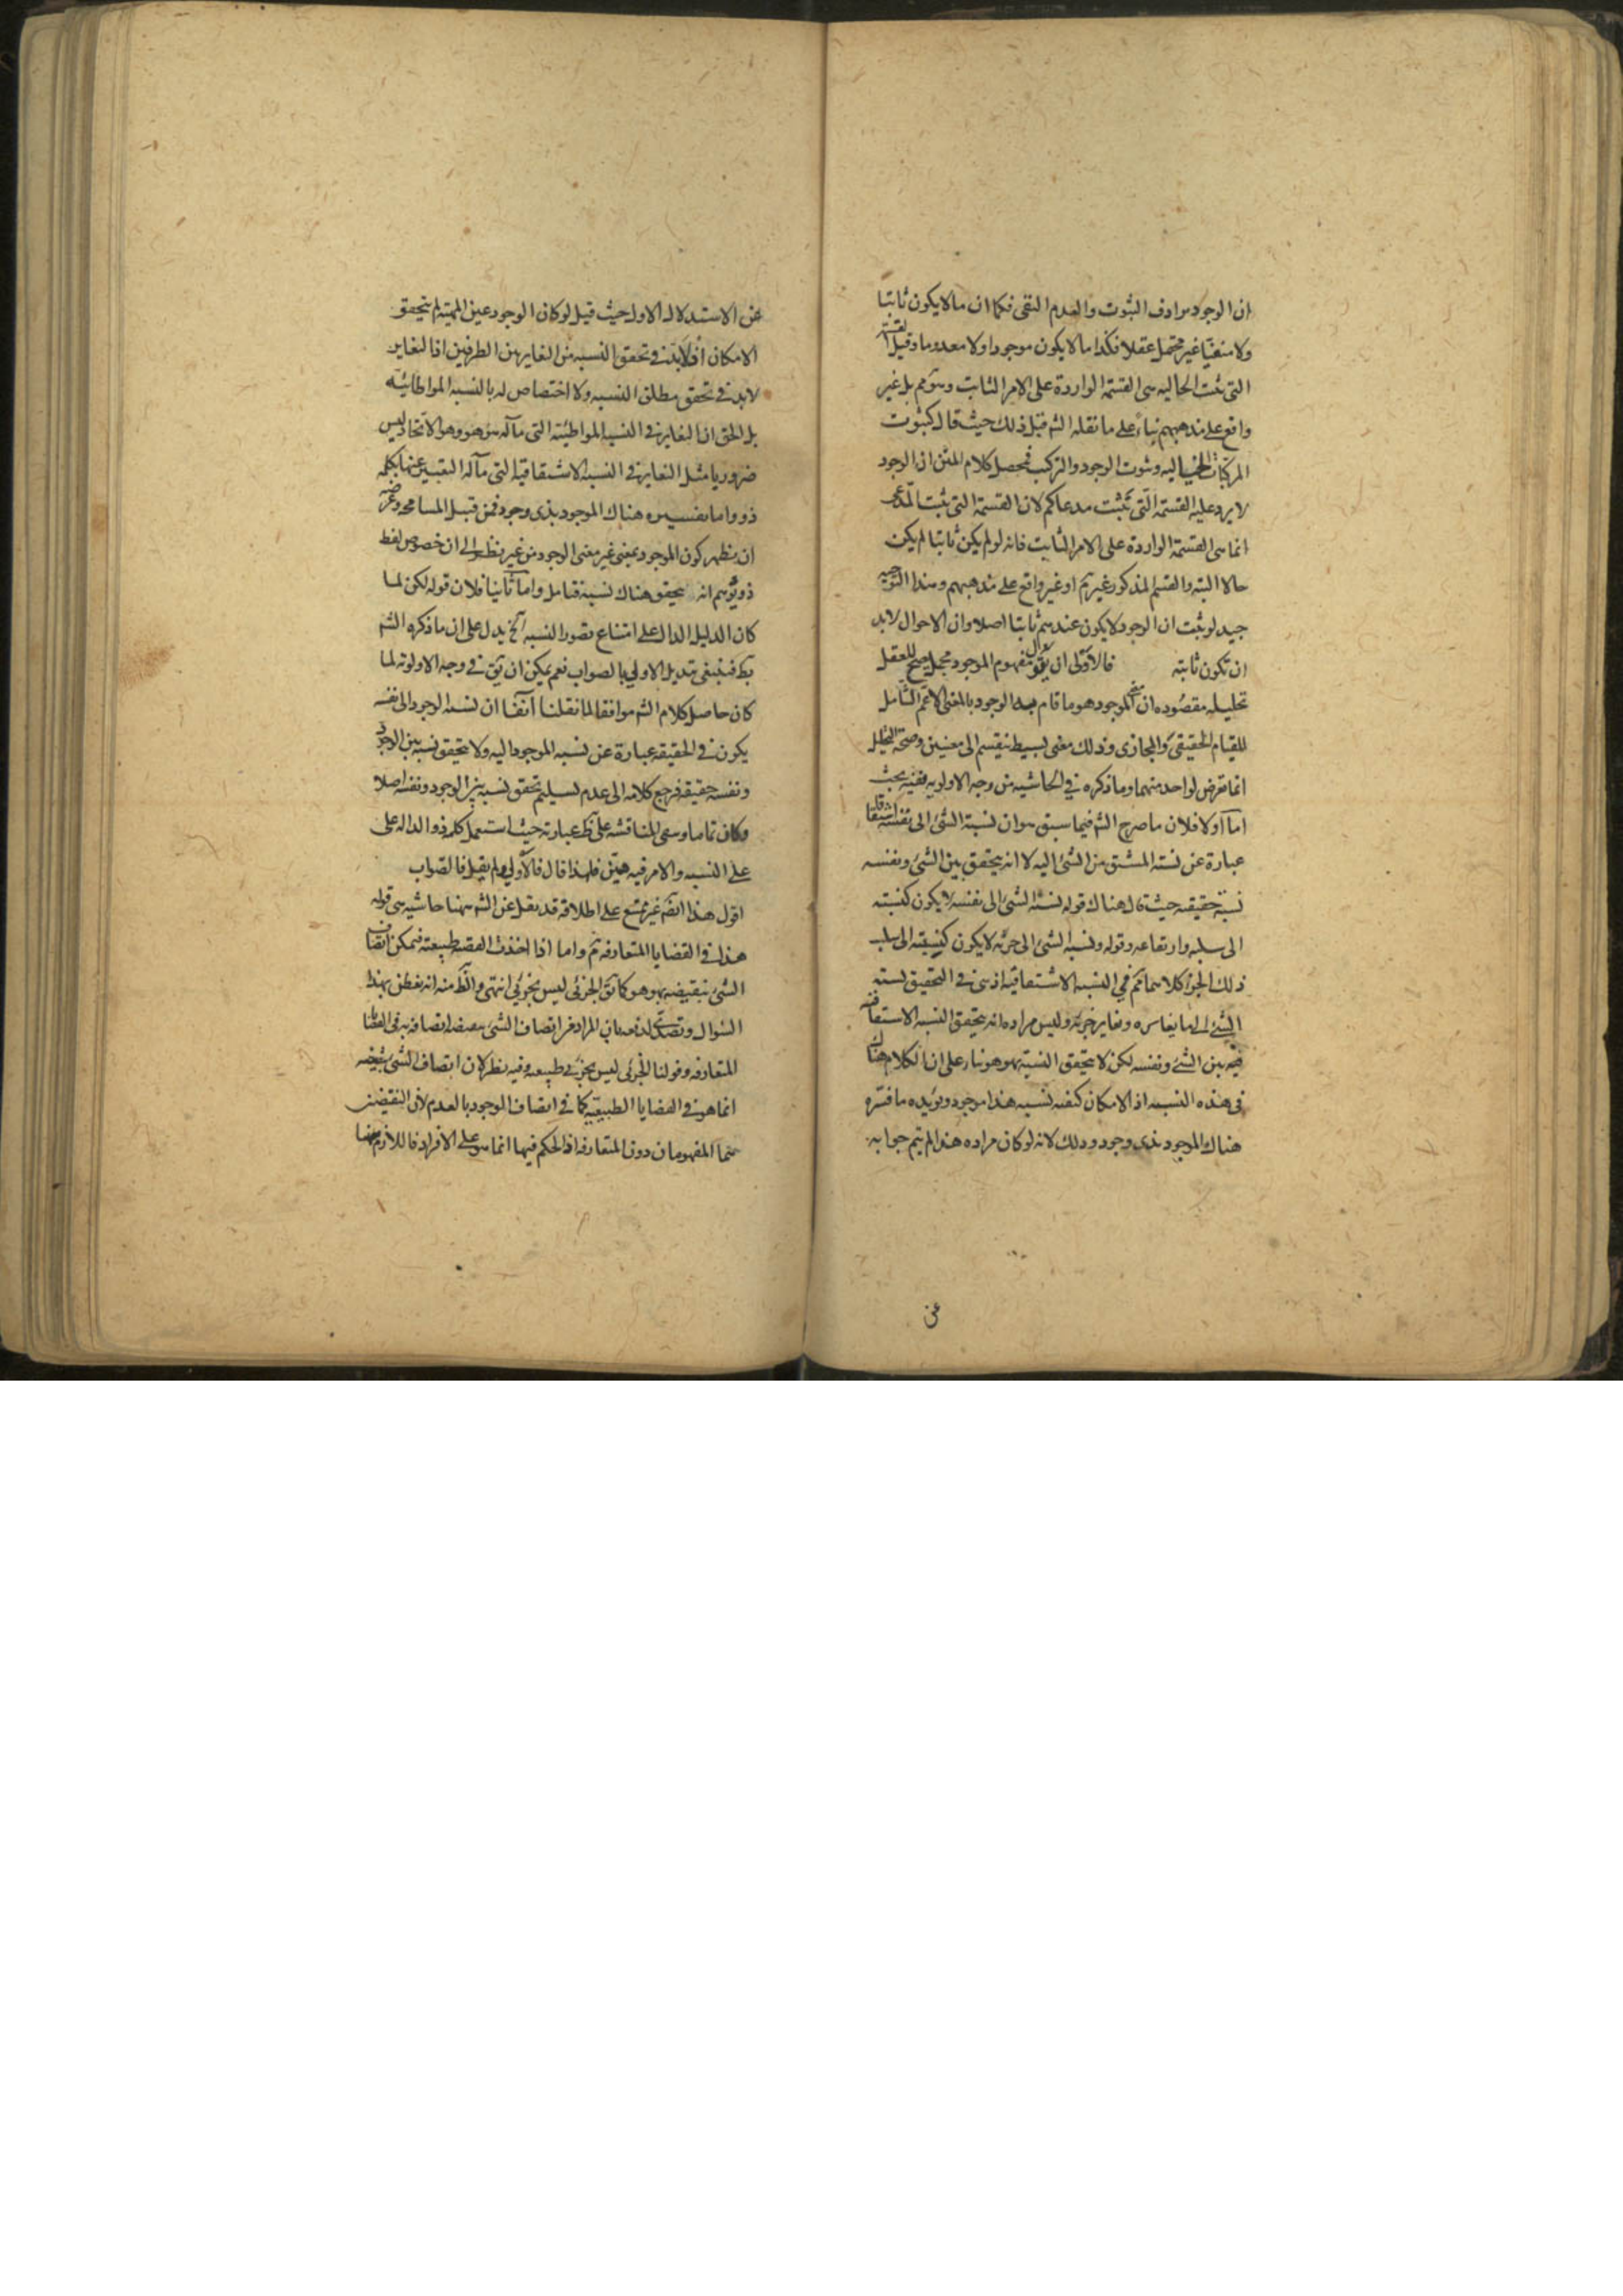 ان الوجود مرادف الثبوت والعدم النفى فكما ان ما لا يكون ثابتا
ولا منفيا غير محتمل عقلا فكذا ما لا يكون موجودا ولا معدوما وقيل القسمة
التى ثبت الحاليه هى القسمة الواردة على الامر الثابت وتوهم بل غير
واقع على مذهبهم بناء على ما نقله الشم قبل ذلك حيث قال كثبوت
المركبات الخياليه وثبوت الوجود والتركيب فمحصل كلام المتن ان الوجود
لا يرد عليه القسمة التى تثبت مدعاكم لان القسمة التى تثبت المدعى
انما هى القسمة الواردة على الامر الثابت فانه لو لم يكن ثابتا لم يكن
حالا البته والقسم المذكور غير تم او غير واقع على مذهبهم وهذا التوجيه
جيد لو ثبت ان الوجود لا يكون عندهم ثابتا اصلا وان الاحوال لابد
ان تكون ثابته فالاولى ان يقول مفهوم الموجود مجمل يصح للعقل
تحليله مقصوده ان الموجود هو ما قام به الوجود بالمعنى الاعم الشامل
للقيام الحقيقى والمجازى وذلك معنى بسيط ينقسم الى معنيين وصحة التحليل
انما تعرض لواحد منهما وما ذكره فى الحاشيه من وجه الاولويه ففيه بحث
اما اولا فلان ما صرح الشم فيما سبق هو ان نسبة الشئ الى نفسه اشتقاقا
عبارة عن نسبة المشتق من الشئ اليه لا انه يتحقق بين الشئ ونفسه
نسبة حقيقه حيث قال هناك قوله نسبة الشئ الى نفسه لا يكون كنسبته
الى سلبه وارتفاعه وقوله ونسبة الشئ الى جزئه لا يكون كنسبته الى سلب
ذلك الجزء كلاهما تم فى النسبه الاشتقاقيه اذ هى فى التحقيق نسبته
الشئ الى ما يغايره ويغاير جزئه وليس مراده انه يتحقق النسبه الاشتقاقيه
فيه بين الشئ ونفسه لكن لا يتحقق النسبة بهوهو بناء على ان الكلام هناك
فى هذه النسبه اذ الامكان كيفيه نسبه هذا موجود ويؤيده ما فسره
هناك الموجود بذى وجود وذلك لانه لو كان مراده هذا لم يتم جوابه
عن
عن الاستدلال الاول حيث قيل لو كان الوجود عين المهية لم يتحقق
الامكان اذ لابد فى تحقق النسبه من التغاير بين الطرفين اذ التغاير
لابد فى تحقق مطلق النسبه ولا اختصاص له بالنسبه المواطائيه
بل الحق ان التغاير فى النسبه المواطئيه التى مآله هو هو وهو الاتحاد ليس
ضروريا مثل التغاير فى النسبه الاشتقاقيه التى مآله التعبير عنها بكلمه
ذو واما تفسيره هناك الموجود بذى وجود فمن قبيل المسامحه وغرضه
ان يظهر كون الموجود بمعنى غير معنى الوجود من غير نظر الى ان خصوص لفظ
ذو يوهم انه يتحقق هناك نسبة فتامل واما ثانيا فلان قوله لكن لما
كان الدليل الدال على امتناع تصور النسبه الخ يدل على ان ما ذكره الشم
بط فينبغى تبديل الاولى بالصواب نعم يمكن ان يق فى وجه الاولويه لما
كان حاصل كلام الشم موافقا لما نقلنا آنفا ان نسبة الوجود الى نفسه
يكون فى الحقيقه عبارة عن نسبه الموجود اليه ولا يتحقق نسبه بين الوجود
ونفسه حقيقه فرجع كلامه الى عدم تسليم تحقق نسبه بين الوجود ونفسه اصلا
وكان تماما وسعى المناقشه على ظ عبارته حيث استعمل كلمه ذو الداله على
على النسبه والامر فيه هين فلهذا قال فالاولى ولم يقل فالصواب
اقول هذا ايضم غير ممتنع على اطلاقه قد نقل عن الشم ههنا حاشيه هى قوله
هذا فى القضايا المتعارفه تم واما اذا اخذت القضيه طبيعته فيمكن اتصاف
الشئ بنقيضه بهوهو كما يق الجزئى ليس بجزئى انتهى والظ منه انه تفطن بهذا
السوال وتصدى لدفعه بان المراد غير اتصاف الشئ بنقيضه اتصافه به فى القضايا
المتعارفه وقولنا الجزئى ليس بجزئى طبيعه وفيه نظر لان اتصاف الشئ بنقيضه
انما هو فى القضايا الطبيعيه كما فى اتصاف الوجود بالعدم لان النقيضين
هما المفهومان دون المتعارفه اذ الحكم فيها انما هو على الافراد فاللازم ههنا